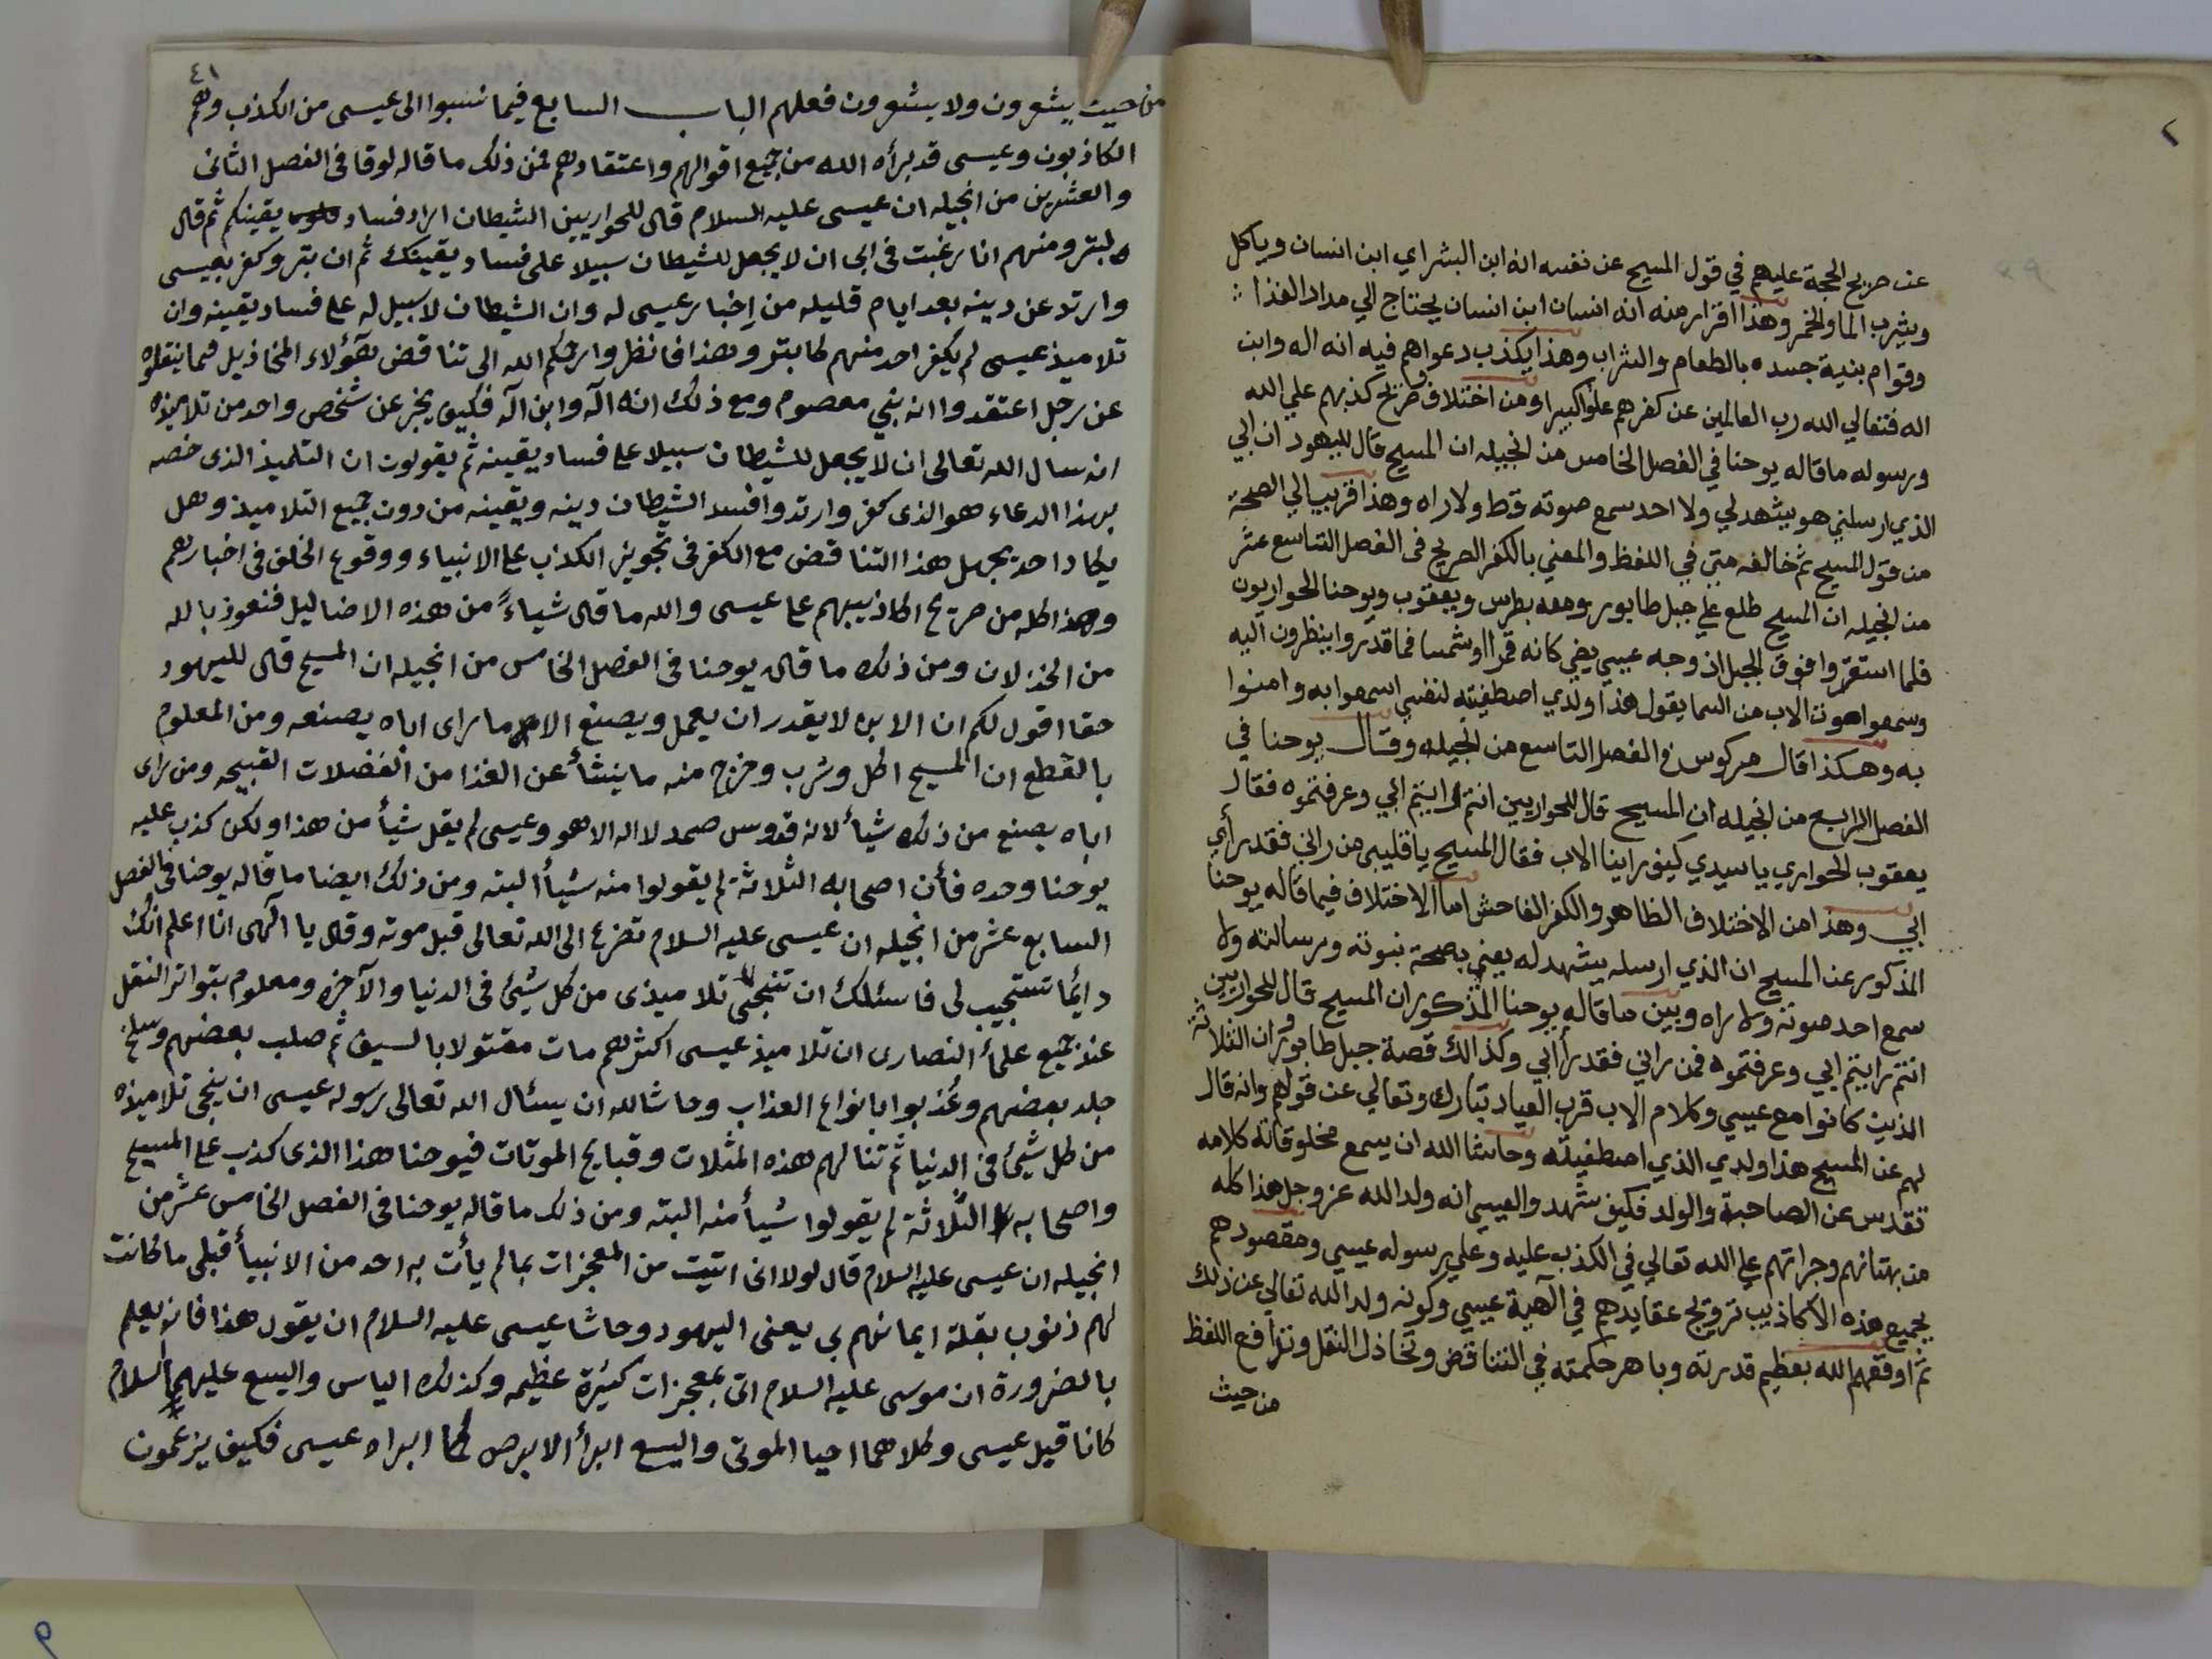 ٢
عن صريح الحجة عليهم في قول المسيح عن نفسه انه ابن البشر اي ابن انسان وياكل
ويشرب الما والخمر وهذا اقرار منه انه انسان ابن انسان يحتاج الي مداد الغذا
وقوام بنية جسده بالطعام والشراب وهذا يكذب دعواهم فيه انه اله وابن
اله فتعالي الله رب العالمين عن كفرهم علوا كبيرا ومن اختلاف صريح كذبهم علي الله
ورسوله ما قاله يوحنا في الفصل الخامس من انجيله ان المسيح قال لليهود ان ابي
الذي ارسلني هو يشهد لي ولا احد سمع صوته قط ولا راه وهذا قريب الي الصحة
من قول المسيح ثم خالفه متي في اللفظ والمعني بالكفر الصريح في الفصل التاسع عشر
من انجيله ان المسيح طلع علي جبل طابور ومعه بطرس ويعقوب ويوحنا الحواريون
فلما استقروا فوق الجبل اذ وجه عيسي يضي كانه قمرا او شمسا فما قدروا ينظرون اليه
وسمعوا صوت الاب من السما يقول هذا ولدي اصطفيته لنفسي اسمعوا به وامنوا
به وهكذا قال مركوس في الفصل التاسع من انجيله وقال يوحنا في
الفصل الرابع من انجيله ان المسيح قال للحواريين انتم رايتم ابي وعرفتموه فقال
يعقوب الحواري يا سيدي كيف راينا الاب فقال المسيح يا قليبى من راني فقد رأي
ابي وهذا من الاختلاف الظاهر والكفر الفاحش اما الاختلاف فيما قاله يوحنا
المذكور عن المسيح ان الذي ارسله يشهد له يعني بصحة نبوته ورسالته ولا
سمع احد صوته ولا راه وبين ما قاله يوحنا المذكور ان المسيح قال للحواريين
انتم رايتم ابي وعرفتموه فمن راني فقد رأ ابي وكذالك قصة جبل طابور وان الثلاثة
الذين كانوا مع عيسي وكلام الاب قرب العباد تبارك وتعالي عن قولهم وانه قال
لهم عن المسيح هذا ولدي الذي اصطفيته وحاشا الله ان يسمع مخلوقاته كلامه
تقدس عن الصاحبة والولد فكيف شهد والعيسى انه ولد الله عز وجل هذا كله
من بهتانهم وجراتهم علي الله تعالي في الكذب عليه وعلي رسوله عيسي ومقصودهم
بجميع هذه الاكاذيب ترويج عقايدهم في آلهية عيسي وكونه ولد الله تعالي عن ذلك
ثم اوقعهم الله بعظيم قدرته وباهر حكمته في التناقض وتخاذل النقل وتزافع اللفظ
من حيث
٤١
من حيث يشعرون ولا يشعرون فعلهم الباب السابع فيما نسبوا الى عيسى من الكذب وهم
الكاذبون وعيسى قد برأه الله من جميع اقوالهم واعتقادهم فمن ذلك ما قاله لوقا فى الفصل الثانى
والعشرين من انجيله ان عيسى عليه السلام قال للحواريين الشيطان اراد فساد يقينكم ثم قال
لبترو منهم انا رغبت فى ابى ان لا يجعل للشيطان سبيلا على فساد يقينك ثم ان بترو كفر بعيسى
وارتد عن دينه بعد ايام قليله من إخبار عيسى له وان الشيطان لا سبيل له على فساد يقينه وان
تلاميذ عيسى لم يكفر احد منهم كا بترو وهذا فانظر وارحمكم الله الى تناقض هؤلاء المخاذيل فيما ينقلوه
عن رجل اعتقدوا انه نبي معصوم ومع ذلك انه آله وابن آله فكيف يخبر عن شخص واحد من تلاميذه
انه سال الله تعالى ان لا يجعل للشيطان سبيلا على فساد يقينه ثم يقولون ان التلميذ الذى خصه
بهذا الدعاء هو الذى كفر وارتد وافسد الشيطان دينه ويقينه من دون جميع التلاميذ وهل
يكاد احد يجهل هذا التناقض مع الكفر فى تجويز الكذب على الانبياء ووقوع الخلف فى اخبارهم
وهذا كله من صريح اكاذيبهم على عيسى والله ما قال شياءً من هذه الاضاليل فنعوذ بالله
من الخذلان ومن ذلك ما قال يوحنا فى الفصل الخامس من انجيله ان المسيح قال لليهود
حقا اقول لكم ان الابن لا يقدر ان يعمل ويصنع الا ما راى اباه يصنعه ومن المعلوم
بالقطع ان المسيح اكل وشرب وخرج منه ما ينشأ عن الغذا من الفضلات القبيحه ومن راى
اباه يصنع من ذلك شيأ لانه قدوس صمد لا اله الا هو وعيسى لم يقل شيأ من هذا ولكن كذب عليه
يوحنا وحده فأن اصحابه الثلاثة لم يقولوا منه شيأ البته ومن ذلك ايضا ما قاله يوحنا فى الفصل
السابع عشر من انجيله ان عيسى عليه السلام تضرع الى الله تعالى قبل موته وقال يا الهى انا اعلم انك
دايمًا تستجيب لى فاسئلك ان تنجى تلاميذى من كل شئ فى الدنيا والآخره ومعلوم بتواتر النقل
عند جميع علمأ النصارى ان تلاميذ عيسى اكثرهم مات مقتولا بالسيف ثم صلب بعضهم وسلخ
جلد بعضهم وعُذبوا بانواع العذاب وحاشا لله ان يسئال الله تعالى رسوله عيسى ان ينجى تلاميذه
من كل شئ فى الدنيا ثم تنالهم هذه المثلات وقبايح الموتات فيوحنا هذا الذى كذب على المسيح
واصحابه الثلاثة لم يقولوا شيأ منه البته ومن ذلك ما قاله يوحنا فى الفصل الخامس عشر من
انجيله ان عيسى عليه السلام قال لولا انى اتيت من المعجزات بما لم يأت به احد من الانبيأ قبلى ما كانت
لهم ذنوب بقلة ايمانهم بى يعنى اليهود وحاشا عيسى عليه السلام ان يقول هذا فانه يعلم
بالضرورة ان موسى عليه السلام اتى بمعجزات كثيرة عظيمه وكذلك الياس واليسع عليهما السلام
كانا قبل عيسى وكلاهما احيا الموتى واليسع ابرأ الابرص كما ابراه عيسى فكيف يزعمون